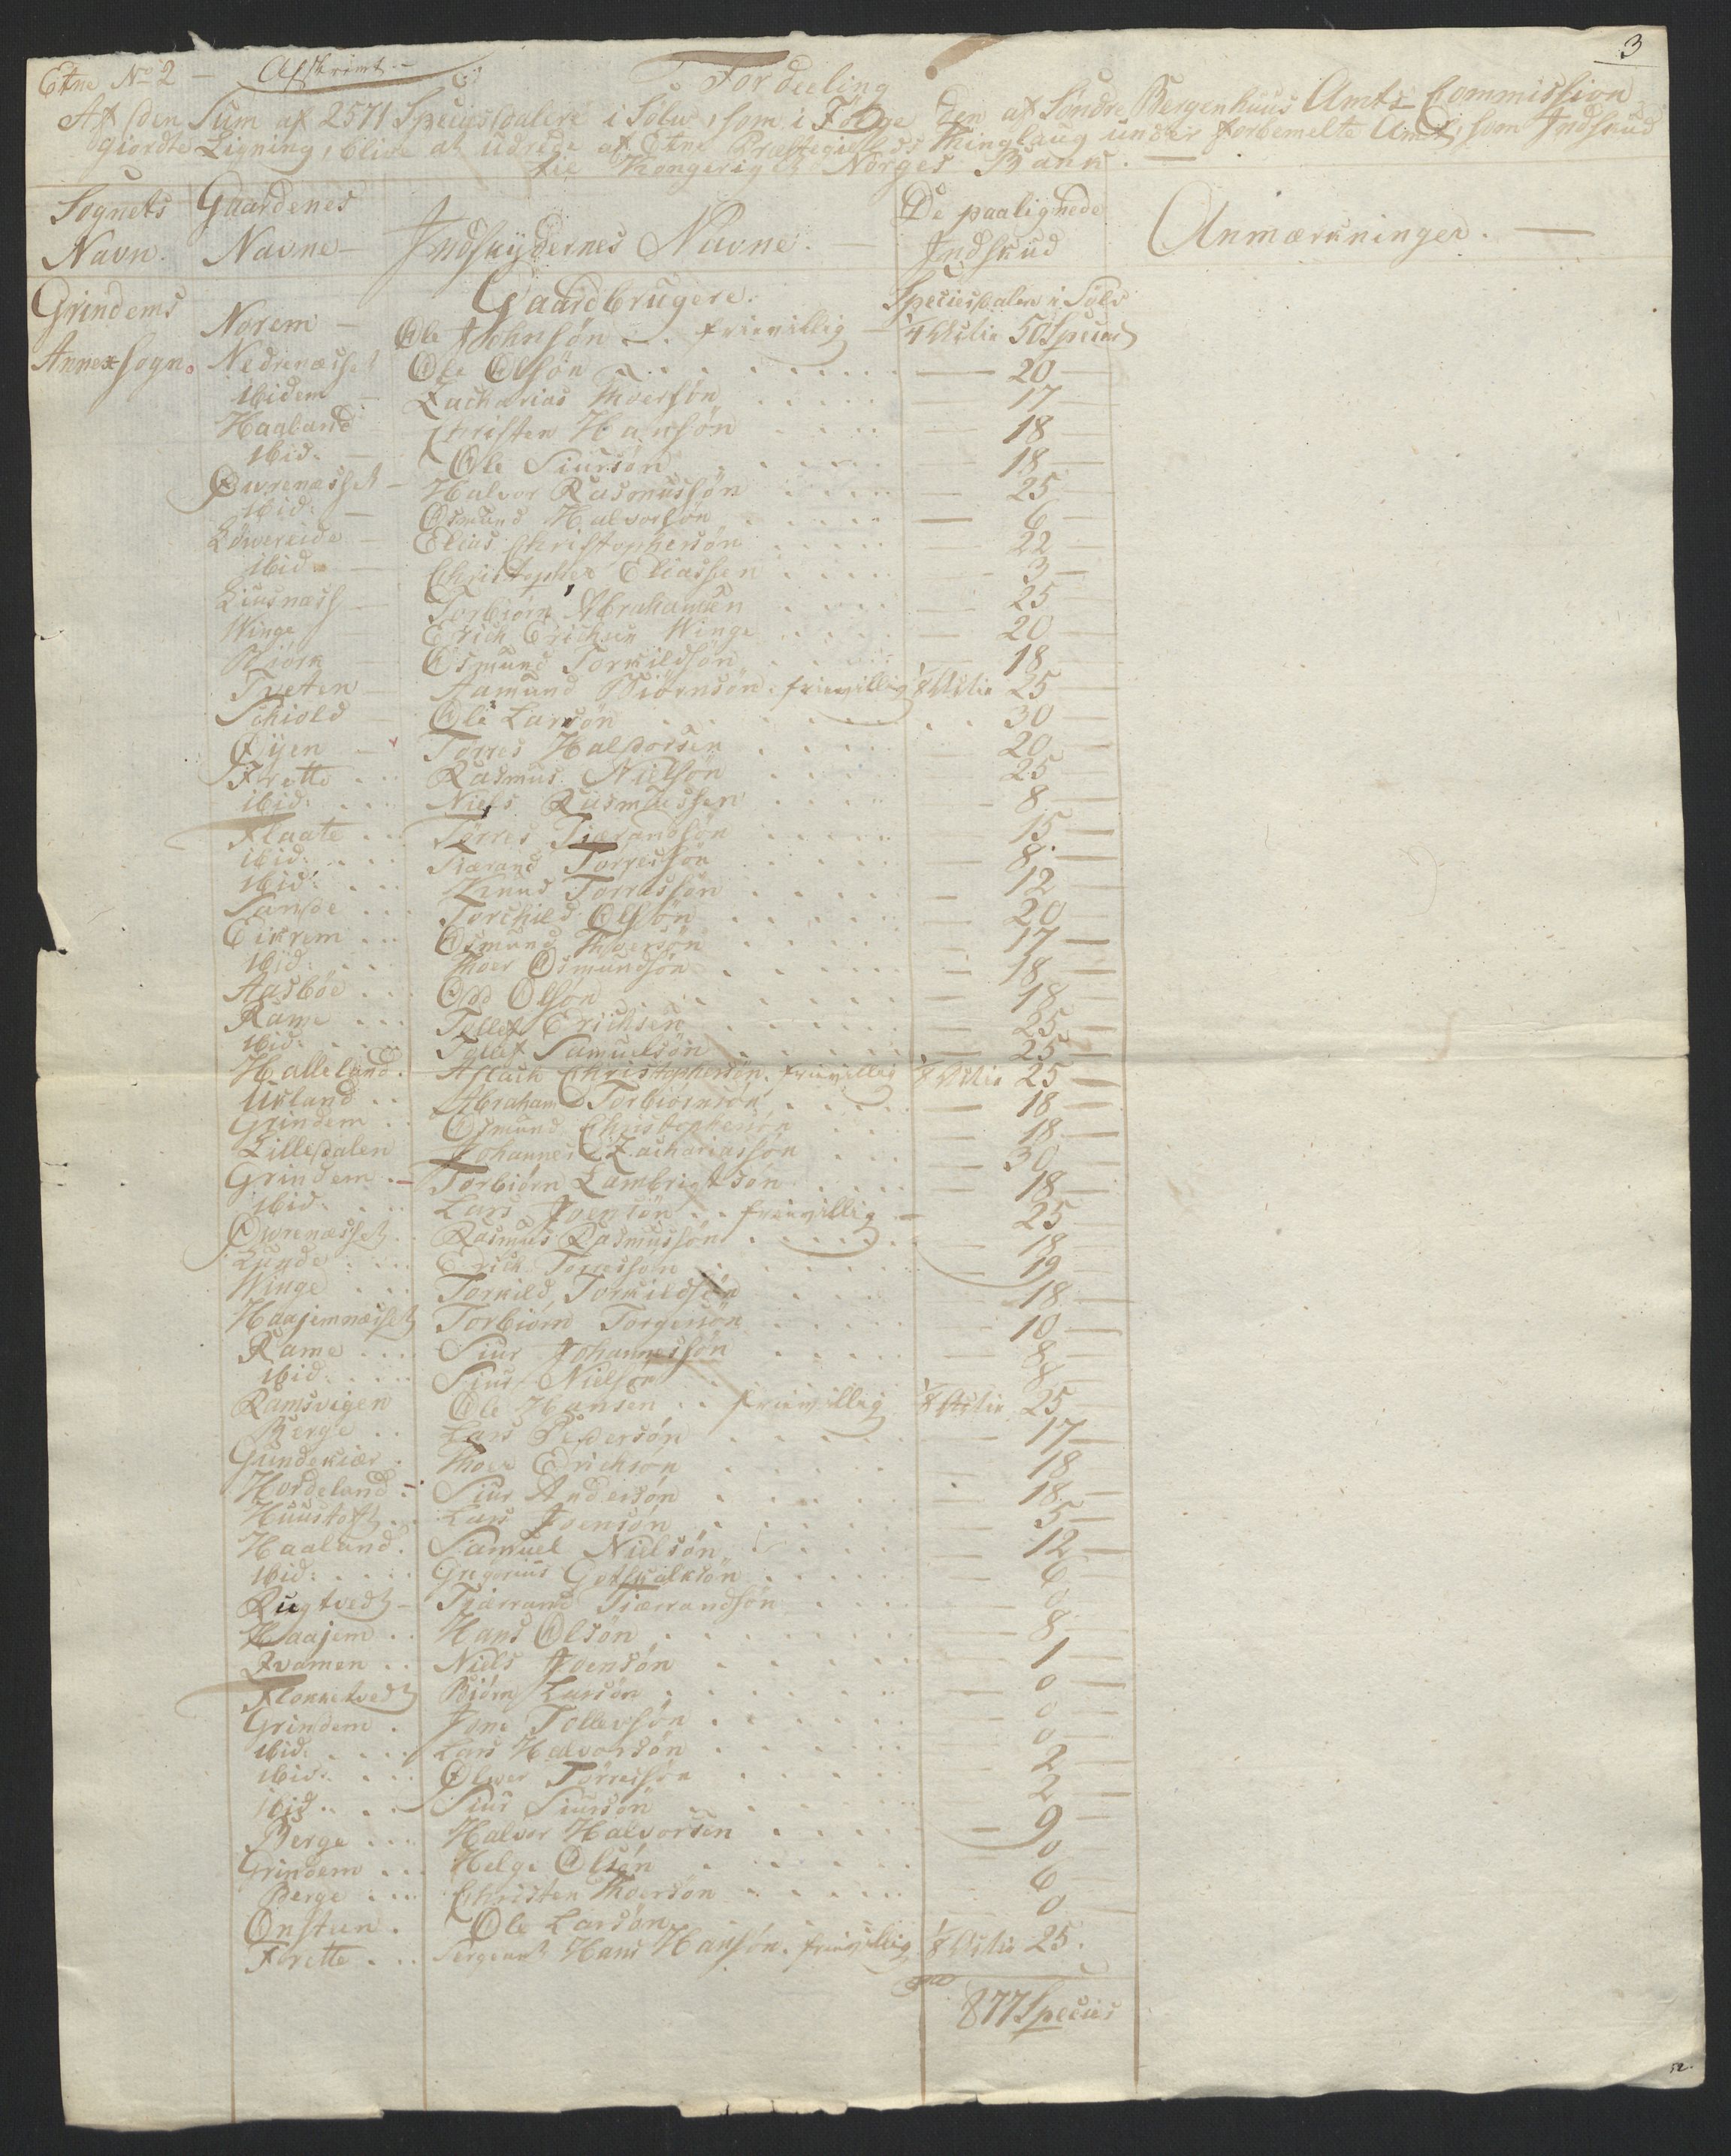 3
Etne No 2 — Afskrivt. —
Fordeeling
Af den Sum af 2571 Speciesdalere i Sølv, som i Følge den af Søndre Bergenhuus Amts Commission
giordte Ligning, blive at udrede af Etne Præstegields Thinglaug under forbemelte Amt, som Indskud
til Kongeriget Norges Bank. —
Sognets Navn. Gaardenes Navne — Indskydernes Navne. De paalignede Indskud Anmærkninger. —
Gaardbrugere. Speciesdaler i Sølv
Grindems Norem — Ole Johnsøn . . frievillig — 1/4 Actie 50 Species
Annex Sogn. Nedrenæsset Ole Olsøn . . . — 20 —
ibidem — Zacharias Thoersøn . . . — 17 —
Hagland — Christen Hansøn . . . — 18 —
ibid. — Ole Siursøn . . . — 18 —
Øvrenæsset — Halvor Rasmussøn . . . — 25
ibid: — Osmund Halvorsøn . . . — 6 —
Løvereide — Elias Christophersøn . . . — 22 —
ibid. — Christopher Eliassen . . . — 3 —
Liusnæss — Torbiørn Abrahamsen . . . — 25 —
Winge — Erich Erichsen Winge . . . — 20 —
Biørk — Osmund Torkildsøn . . . — 18 —
Tveten — Aamund Biørnsøn. frievillig 1/8 Actie 25 —
Schiold — Ole Larsøn . . . 30 —
Øyen — Torres Haldorsen . . . — 20 —
Frette . . . Rasmus Nielsøn . . . 25 —
ibid: . . . Niels Rasmussen . . . — 8 —
Flaate . . . Tørres Tiærandsøn . . . — 15 —
ibid: . . . Tiærand Torressøn . . . — 8. —
ibid: . . . Knud Torressøn . . . — 12 —
Sandøe . . . Torchild Olsøn . . . — 20 —
Eikrem . . . Osmund Thoersøn . . . — 17 —
ibid: . . . Thoer Osmundsøn . . . — 18 —
Aasbøe . . . Odd Olsøn . . . — 18 —
Rame . . . Tollef Erichsen . . . — 25 —
ibid: . . . Tollef Samuelsøn . . . — 25 —
Halleland. Aslach Christophersøn. frievillig 1/8 Actie 25 —
Uskland . . Abraham Torbiørnsøn . . . — 18 —
Grindem . . Osmund Christophersøn . . . — 18 —
Lilledalen Johannes Zachariassøn . . . — 30 —
Grindem . — Torbiørn Lambrigtsøn . . . — 18 —
ibid. . . . Lars Joensøn . . frievillig — 25 —
Øvrenæsset . Rasmus Rasmussøn . . . — 18 —
Lunde . . . Erich Torressøn . . . 19 —
Winge . . . Torkild Torkildsøn . . . — 18 —
Haajemnæsset Torbiørn Torgersøn . . . — 10 —
Rame . . . Siur Johannessøn . . . — 8 —
ibid. . . . Siur Nielsøn . . . — 8 —
Ramsvigen Ole Hansen . . frievillig 1/8 Actie 25
Berge . . Lars Pedersøn . . . — 17 —
Gundekiær . Thoer Erichsøn . . . — 18 —
Hordeland . Siur Andersøn . . . — 18. —
Huustoft . . Lars Joensøn . . . — 5 —
Haaland . Samuel Nielsøn . . . — 12 —
ibid: . . . Grigorius Gotskalksøn . . . — 6 —
Rugtvedt — Tiærrand Tiærrandsøn . . . — 0 —
Haajem . . Hans Olsøn . . . — 8 —
Kvamen . . Niels Joensøn . . . — 1 —
Flokketvedt Biørn Larsøn . . . — 0 —
Grindem . Jone Tollevsøn . . . — 0 —
ibid: . . . Lars Halvorsøn . . . — 0 —
ibid: . . . Oliver Tørressøn . . . — 2 —
ibid . . . Siur Siursøn . . . — 2 —
Berge . . . Halvor Halvorsen . . . — 9 —
Grindem . . . Helge Olsøn . . . — 0 —
Berge . . . Christen Thoersøn . . . — 6 —
Onstun . Ole Larsøn . . . — 0 —
Frette . . . Sergeant Hans Hansøn. frievillig 1/8 Actie 25.
877 Species